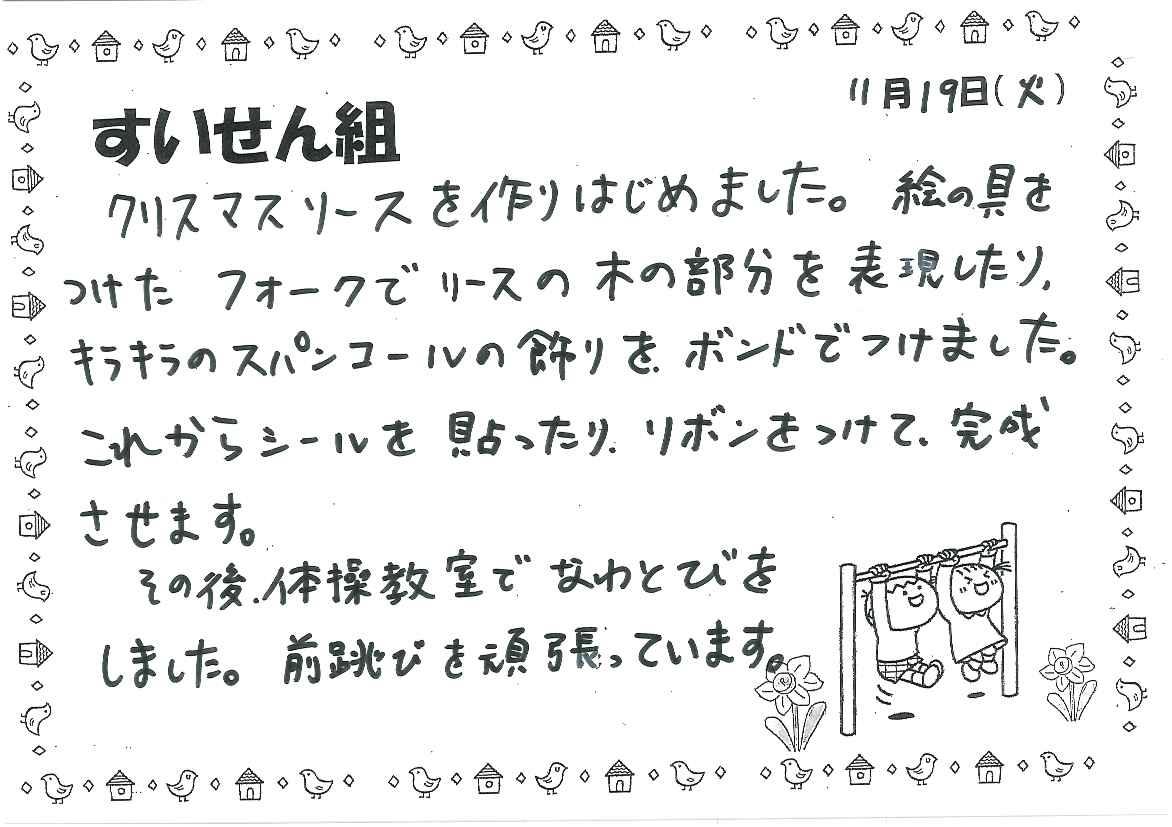 11月19日(火)
すいせん組
クリスマスリースを作りはじめました。絵の具を
つけた フォークで リースの木の部分を表現したり、
キラキラのスパンコールの飾りを、ボンドでつけました。
これからシールを貼ったり、リボンをつけて、完成
させます。
その後、体操教室でなわとびを
しました。前跳びを頑張っています。